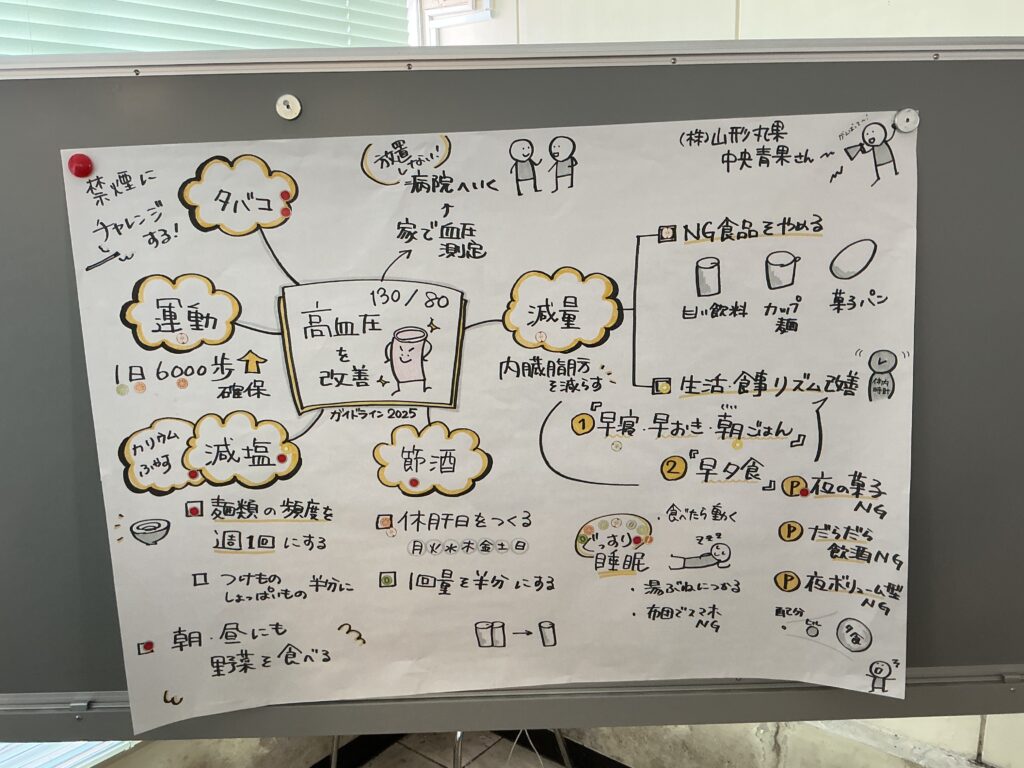 禁煙に
チャレンジ
する!
タバコ
放置
しない!
病院へいく
↑
家で血圧
測定
(株)山形丸果
中央青果さん
がんばって〜!
運動
1日6000歩
確保
130/80
高血圧
を
改善
ガイドライン2025
減量
内臓脂肪
を減らす
NG食品をやめる
甘い飲料
カップ
麺
菓子パン
生活・食事リズム改善
体内
時計
①『早寝・早おき・朝ごはん』
②『早夕食』
P 夜の菓子
NG
P だらだら
飲酒NG
P 夜ボリューム型
NG
配分
夕食
カリウム
ふやす
減塩
麺類の頻度を
週1回にする
つけもの
しょっぱいもの
半分に
朝・昼にも
野菜を食べる
節酒
休肝日をつくる
月火水木金土日
1回量を半分にする
ぐっすり
睡眠
・食べたら動く
zzzz
・湯ぶねにつかる
・布団でスマホ
NG